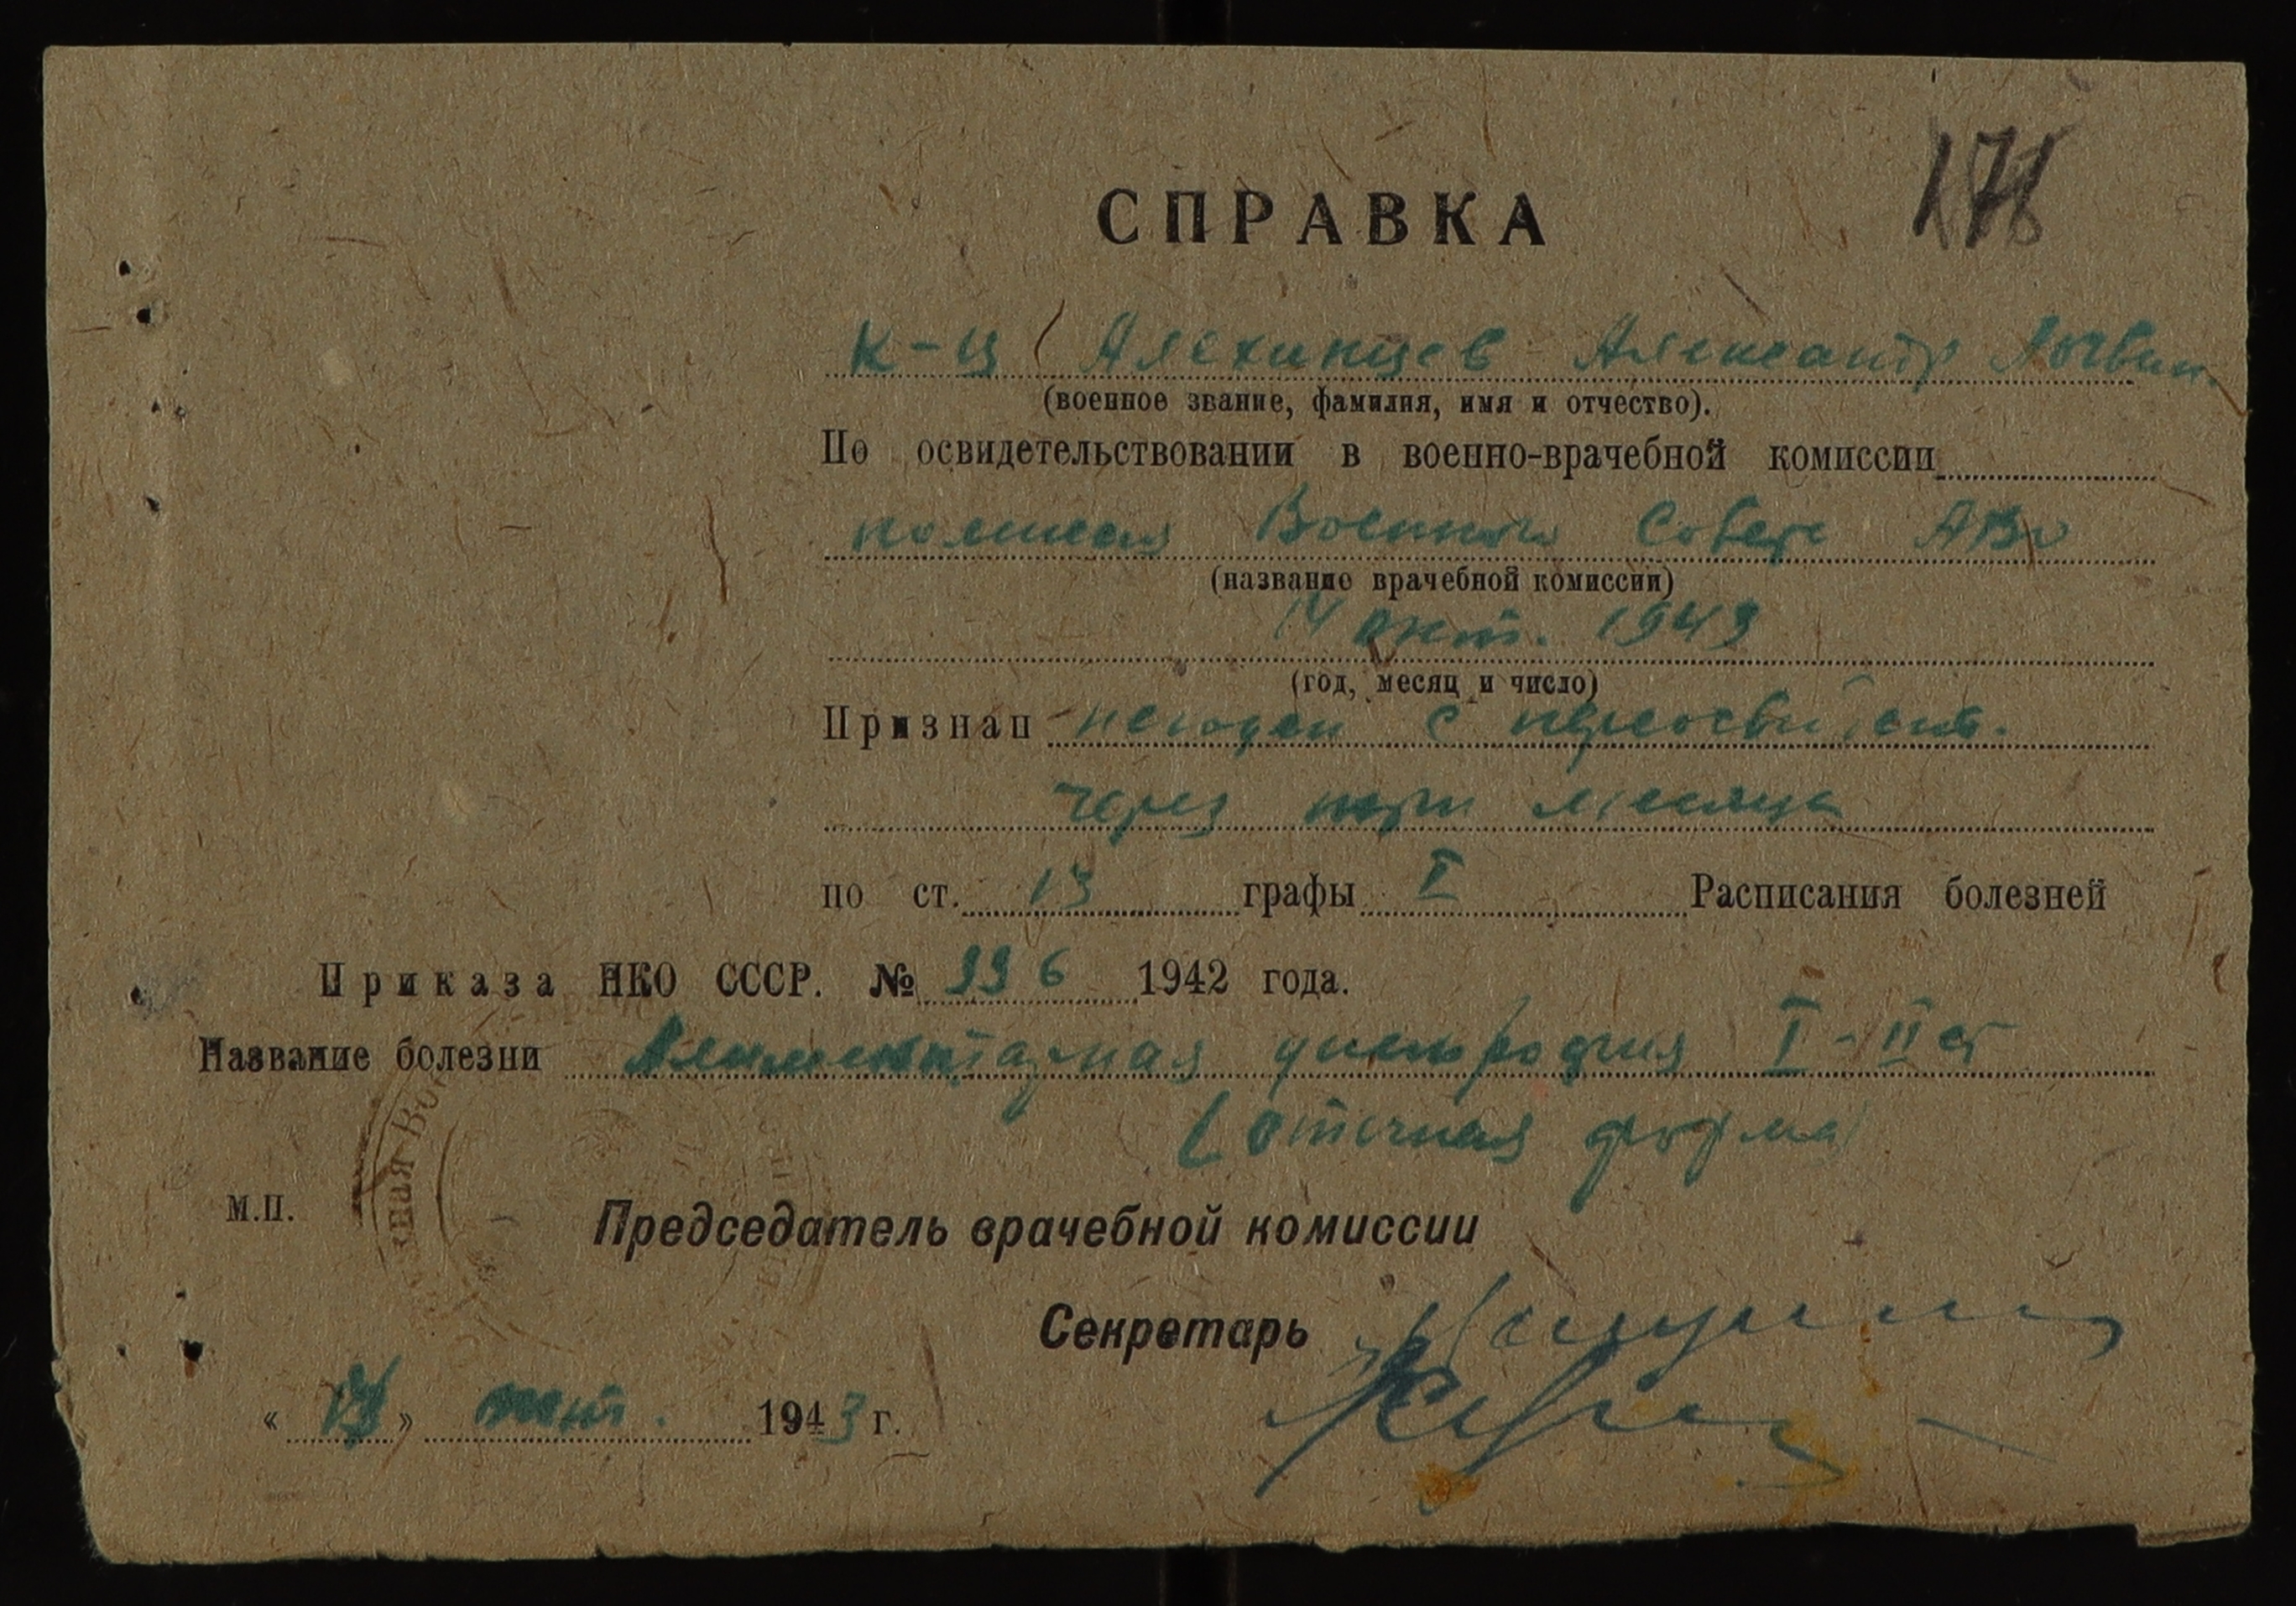 178
СПРАВКА
к-ц Алехинцев Александр Логвин.
(военное звание, фамилия, имя и отчество).
По освидетельствовании в военно-врачебной комиссии
комиссия Военного Совета АВО
(название врачебной комиссии)
14 окт. 1943
(год, месяц и число)
Признан негоден с переосвид.
через три месяца
по ст. 13 графы I Расписания болезней
Приказа НКО СССР. № 336 1942 года.
Название болезни Алиментарная дистрофия I-II ст
(отечная форма)
М.П.
Председатель врачебной комиссии
Секретарь
« » окт. 1943 г.